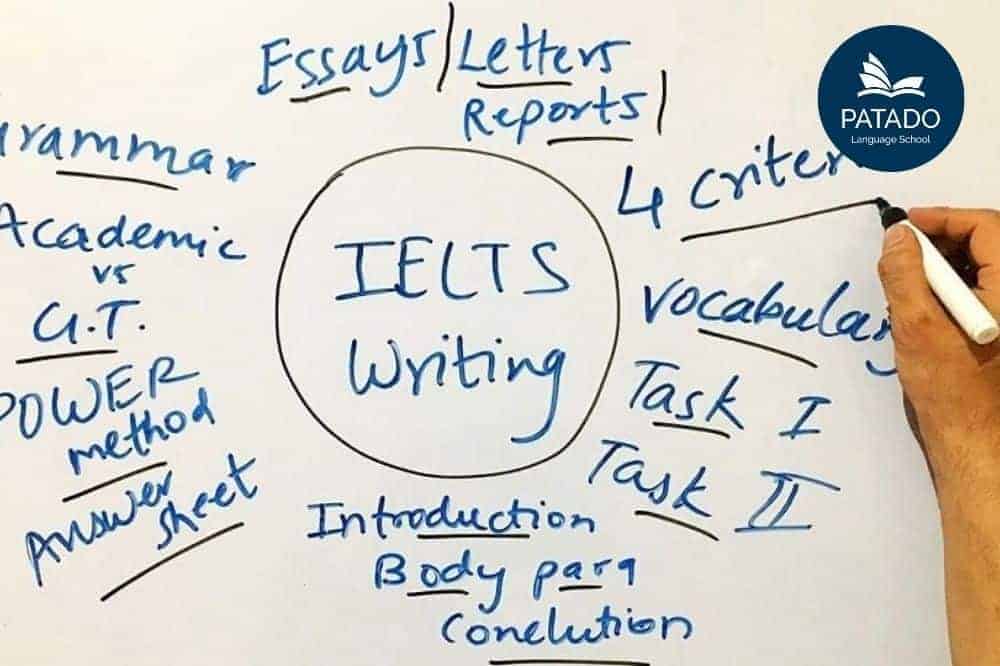 Essays/Letters
Reports/
PATADO
Language School
4 criteri
Grammar
Academic
vs
G.T.
POWER
method
Answer
sheet
IELTS
Writing
vocabulary
Task I
Task II
Introduction
Body para
Conclution